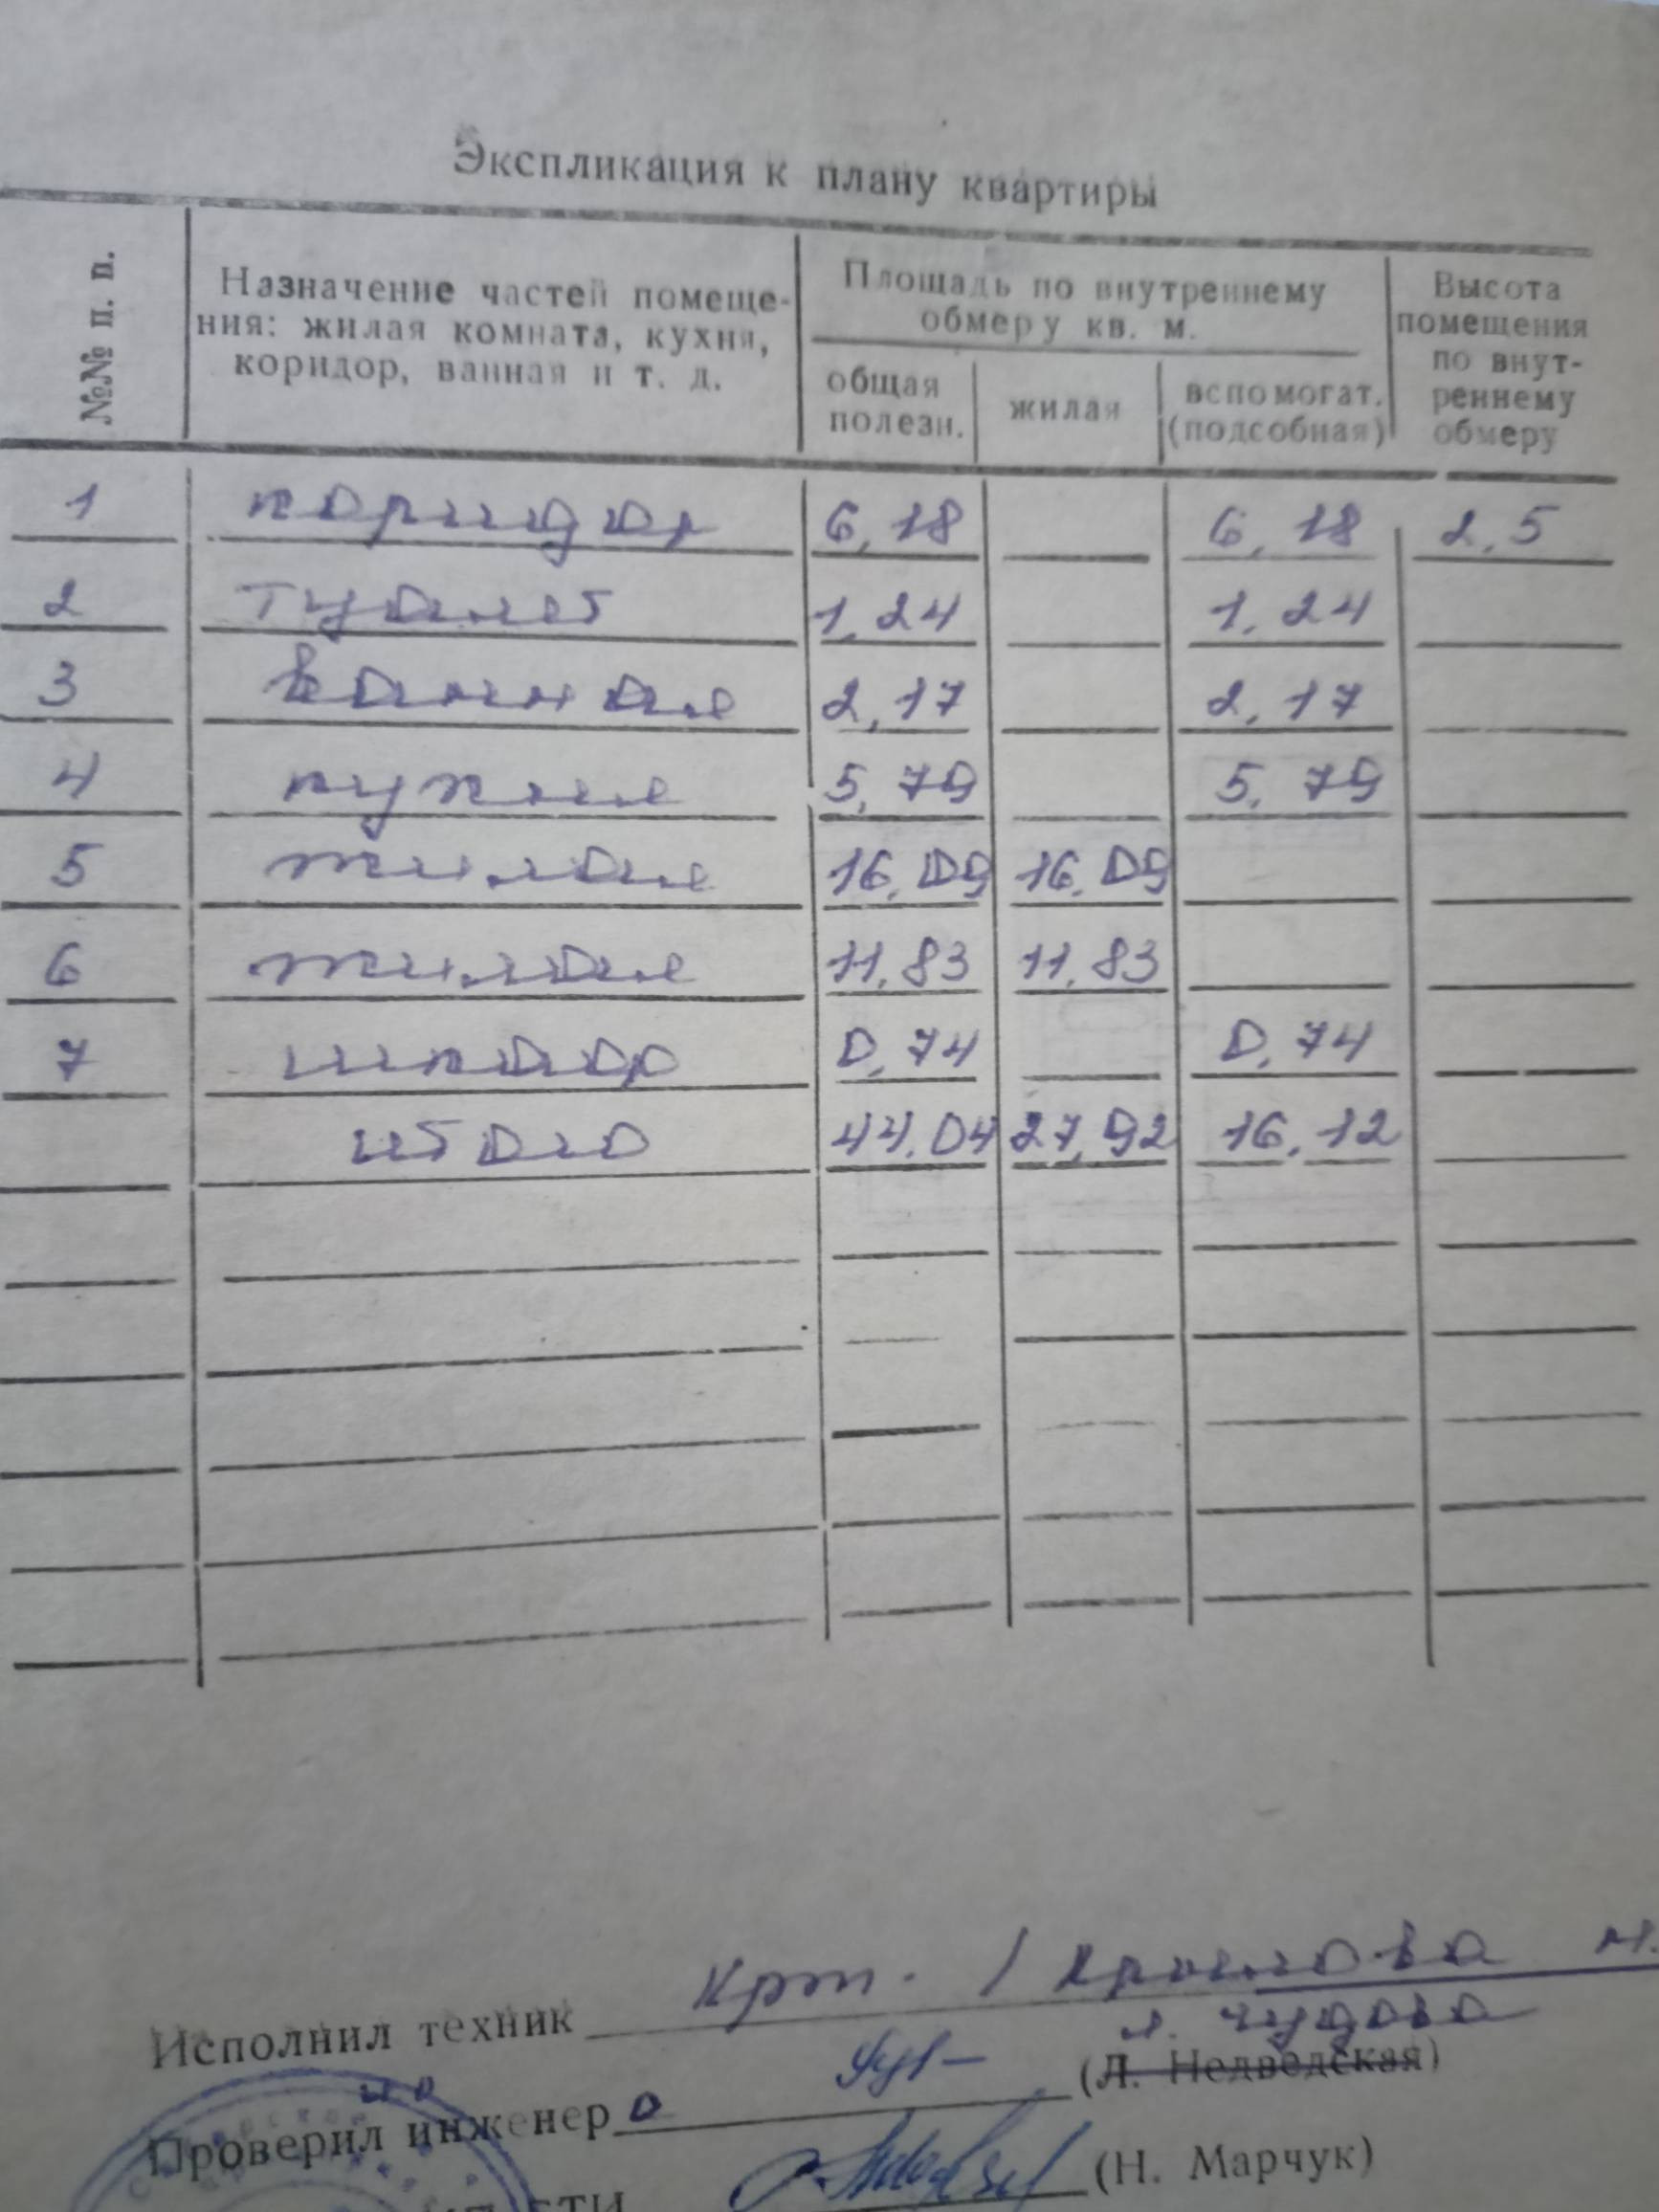 Экспликация к плану квартиры
№№ п. п.
Назначение частей помеще-
ния: жилая комната, кухни,
коридор, ванная и т. д.
Площадь по внутреннему
обмеру кв. м.
общая
полезн.
жилая
вспомогат.
(подсобная)
Высота
помещения
по внут-
реннему
обмеру
1 коридор 6,18 6,18 2,5
2 туалет 1,24 1,24
3 ванная 2,17 2,17
4 кухня 5,79 5,79
5 жилая 16,09 16,09
6 жилая 11,83 11,83
7 шкаф 0,74 0,74
итого 44,04 27,92 16,12
Исполнил техник / Крылова Н.
Л. Чудова
Проверил инженер (Л. Недведская)
(Н. Марчук)